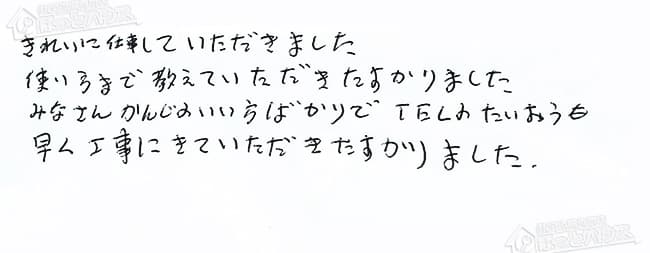 きれいに仕事していただきました
使い方まで教えていただきたすかりました
みなさんかんじのいい方ばかりでTELのたいおうも
早く工事にきていただきたすかりました.
ほっとハウス
ほっとハウス